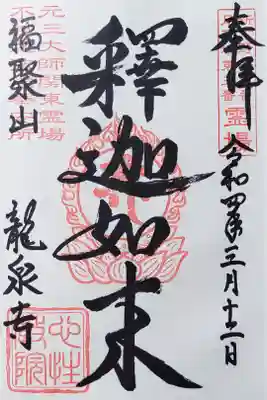 奉拝
令和四年三月十二日
釋迦如来
元三大師関東霊場
福聚山
龍泉寺